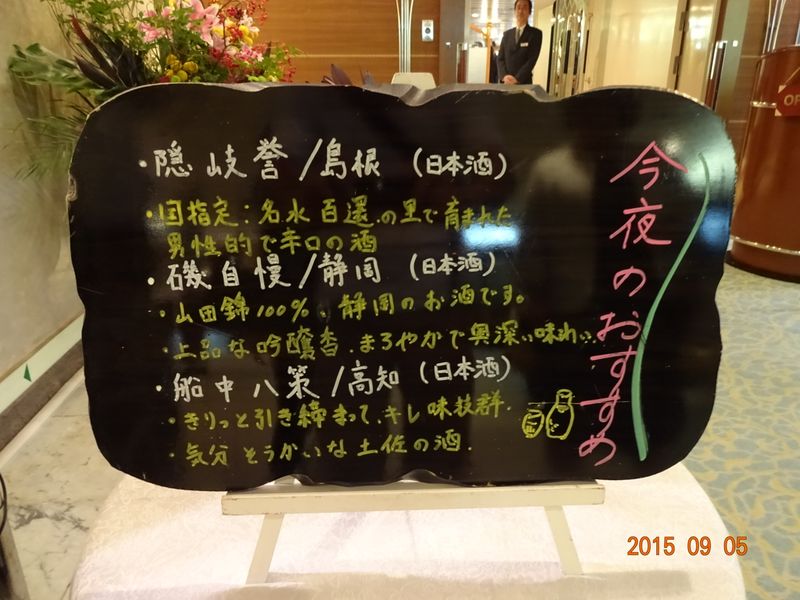 今夜のおすすめ
・隠岐誉/島根 (日本酒)
・国指定:名水百選.の里で育まれた
男性的で辛口の酒
・磯自慢/静岡 (日本酒)
・山田錦100%、静岡のお酒です。
・上品な吟醸香.まろやかで奥深い味わい.
・船中八策/高知 (日本酒)
・きりっと引き締まって、キレ味抜群.
・気分そうかいな土佐の酒.
OP
2015 09 05